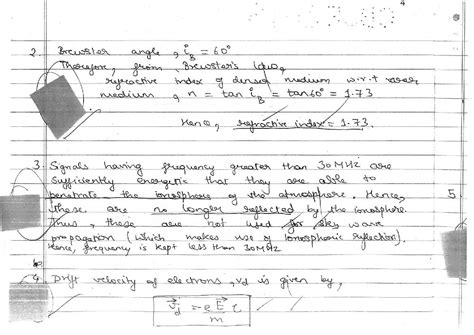 4
2. Brewster angle, i_B = 60°
Therefore, from Brewster's law,
refractive index of denser medium w.r.t rarer
medium, n = tan i_B = tan 60° = 1.73
Hence, refractive index = 1.73.
3. Signals having frequency greater than 30 MHz are
sufficiently energetic that they are able to
penetrate the ionosphere of the atmosphere. Hence, 5
these are no longer reflected by the ionosphere.
Thus, these are not used for sky wave
propagation (which makes use of ionospheric reflection).
Hence, frequency is kept less than 30 MHz
4. Drift velocity of electrons, vd is given by,
v⃗d = -e E⃗ τ / m